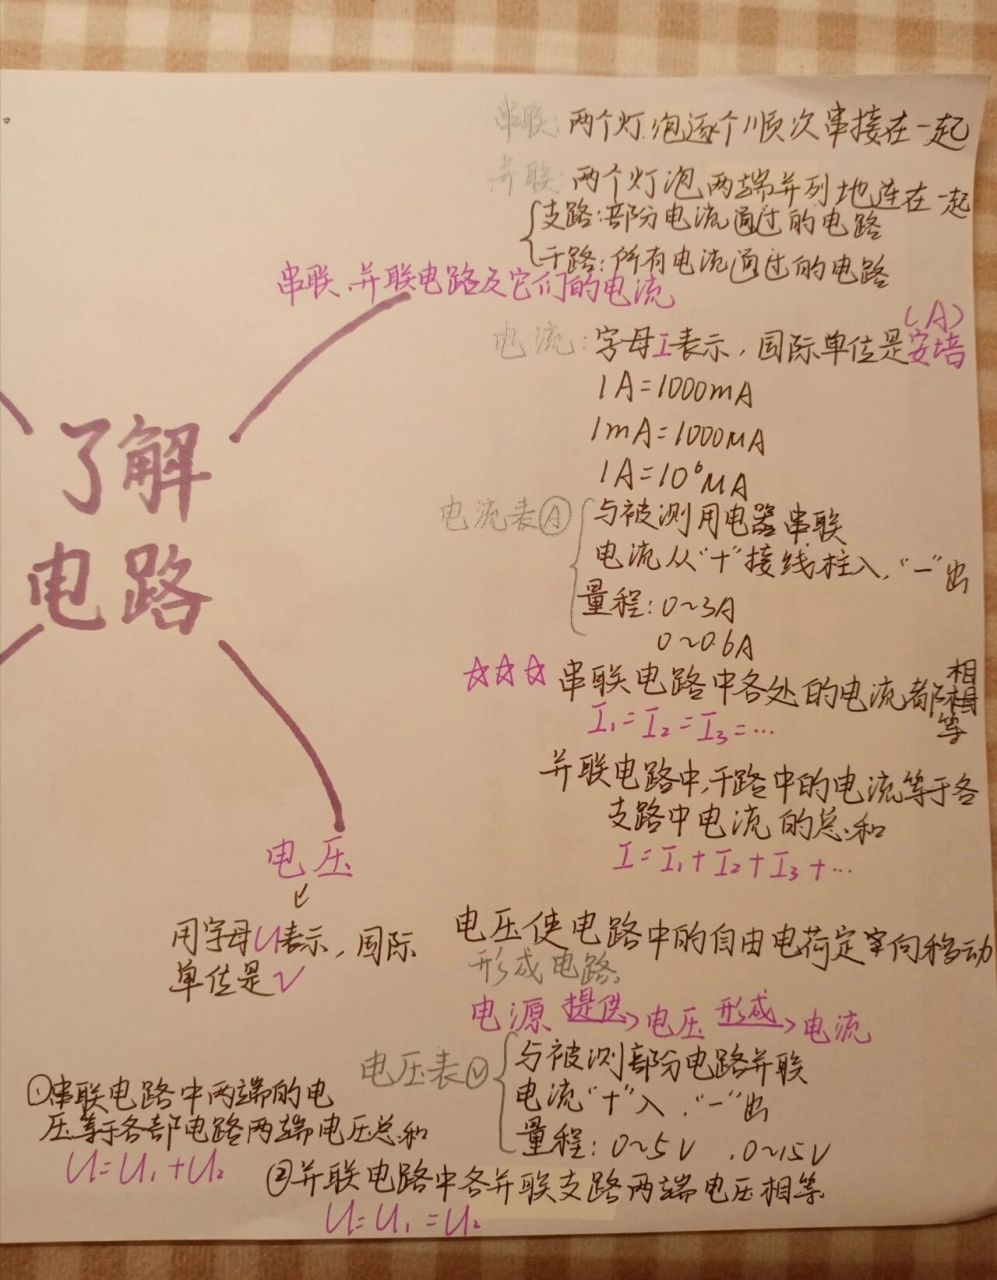 串联:两个灯泡逐个顺次串接在一起
并联:两个灯泡两端并列地连在一起
支路:部分电流通过的电路
干路:所有电流通过的电路
串联、并联电路及它们的电流
电流:字母I表示,国际单位是安培
(A)
1A=1000mA
1mA=1000μA
1A=10⁶μA
电流表Ⓐ
与被测用电器串联
电流从"+"接线柱入,"-"出
量程:0~3A
0~0.6A
了解
电路
☆☆☆串联电路中各处的电流都相等
I₁=I₂=I₃=…
并联电路中,干路中的电流等于各
支路中电流的总和
I=I₁+I₂+I₃+…
电压
用字母U表示,国际
单位是V
电压使电路中的自由电荷定向移动
形成电路。
电源 提供→电压 形成→电流
电压表Ⓥ
与被测部分电路并联
电流"+"入,"-"出
量程:0~5V,0~15V
①串联电路中两端的电
压等于各部电路两端电压总和
U=U₁+U₂
②并联电路中各并联支路两端电压相等
U=U₁=U₂